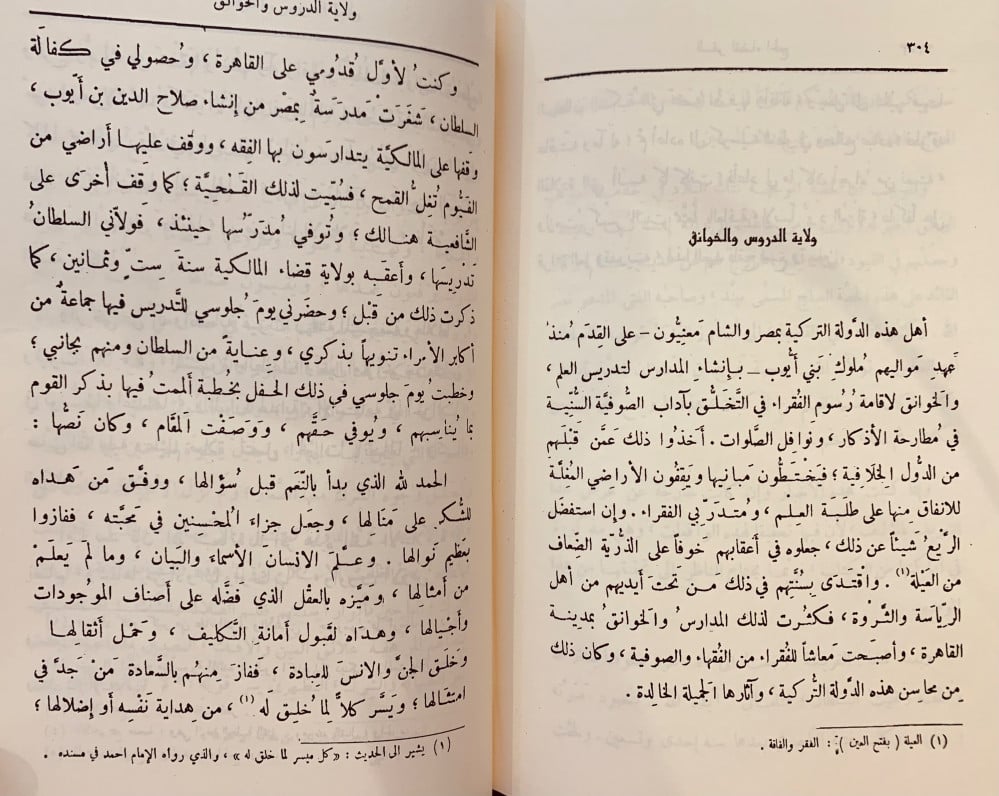 ٣٠٤
ولاية الدروس والخوانق
أهل هذه الدَّولة التركية بمصر والشام مَعنِيُّون – على القِدَم مُنذ
عَهدِ مَواليهم مُلوك بَني أَيُّوب – بإنشاء المدارس لتدريس العلم ،
والخوانق لاقامة رُسوم الفُقراء في التخَلُّق بآداب الصُّوفية السُّنِّية
في مُطارحة الأذكار ، ونَوافِل الصَّلوات . أخذوا ذلك عَمَّن قَبْلَهم
من الدُّول الخِلافية ؛ فيَخْتَطُّون مَبانيها ويَقِفُون الأراضي المُغِلَّة
للانفاق منها على طلَبة العِلْم ، ومُتدَرِّبي الفقراء . وإن استفضَل
الرَّيْعُ شَيئاً عن ذلك ، جعلوه في أعقابهم خوفاً على الذُّرِّية الضِّعاف
من العَيْلة (١) . واقْتدَى بِسُنَّتهم في ذلك مَن تَحْتَ أيديهم من أهل
الرِّياسَة والثَّرْوة ، فكَثُرت لذلك المدارسُ والخَوانقُ بمدينة
القاهرة ، وأصبَحت مَعاشاً للفُقراء من الفُقهاء والصوفية ، وكان ذلك
مِن محاسن هذه الدَّولة التُّركية ، وآثارها الجميلة الخالِدة .
(١) العيلة ( بفتح العين ) : الفقر والفاقة .
ولاية الدروس والخوانق
وكنتُ لأوَّل قُدُومي على القاهرة ، وحُصولي في كفالَة
السلطان ، شَغَرَتْ مَدرَسَةٌ بِمِصْر من إنشاء صلاح الدين بن أَيُّوب ،
وقفها على المالكيَّة يتدارَسون بها الفِقه ، ووقف عليها أراضي من
الفَيُّوم تُغِلُّ القمح ، فسُمِّيت لذلك القَمْحِيَّة ؛ كما وقف أُخرَى على
الشَّافعية هنالك ؛ وتُوفي مُدَرِّسُها حينئذ ، فولاَّني السلطانُ
تَدْريسَها ، وأعقَبه بولاية قضاء المالكية سنةَ سِتٍّ وثمانين ، كما
ذكرت ذلك من قَبْل ؛ وحضَرني يومَ جُلوسي للتَّدريس فيها جماعةٌ من
أكابر الأمراء تنويهاً بذكري ، وعِنايةً من السلطان ومنهم بجانبي ؛
وخطبتُ يومَ جلوسي في ذلك الحَفْل بخُطبة أَلممتُ فيها بذكر القوم
بما يُناسِبهم ، ويُوفي حقَّهم ، ووَصَفْت المقَام ، وكان نَصُّها :
الحمد لله الذي بدأ بالنِّعَم قبلَ سُؤالها ، ووفَّق مَن هَداه
للشُّكر على مَنَالها ، وجعَل جزاءَ المُحْسنين في مَحبَّته ، ففازوا
بعَظيم نَوالها . وعلَّم الانسان الأسماءَ والبَيان ، وما لَمْ يَعلَمْ
من أمثالِها ، ومَيَّزه بالعقْل الذي فضَّله على أصناف الموجُودات
وأجْيالها ، وهدَاه لقَبول أمانةِ التَّكليف ، وحَمْل أثقالِها .
وخلَق الجنَّ والانس للعِبادة ، ففازَ منهُم بالسَّعادة مَنْ جَدَّ في
امتثالها ؛ ويَسَّر كلاًّ لِما خُلِق لَه (١) ، من هِداية نَفْسِه أو إضلالها ؛
(١) يشير الى الحديث : « كل ميسر لما خلق له » ، والذي رواه الإمام احمد في مسنده .